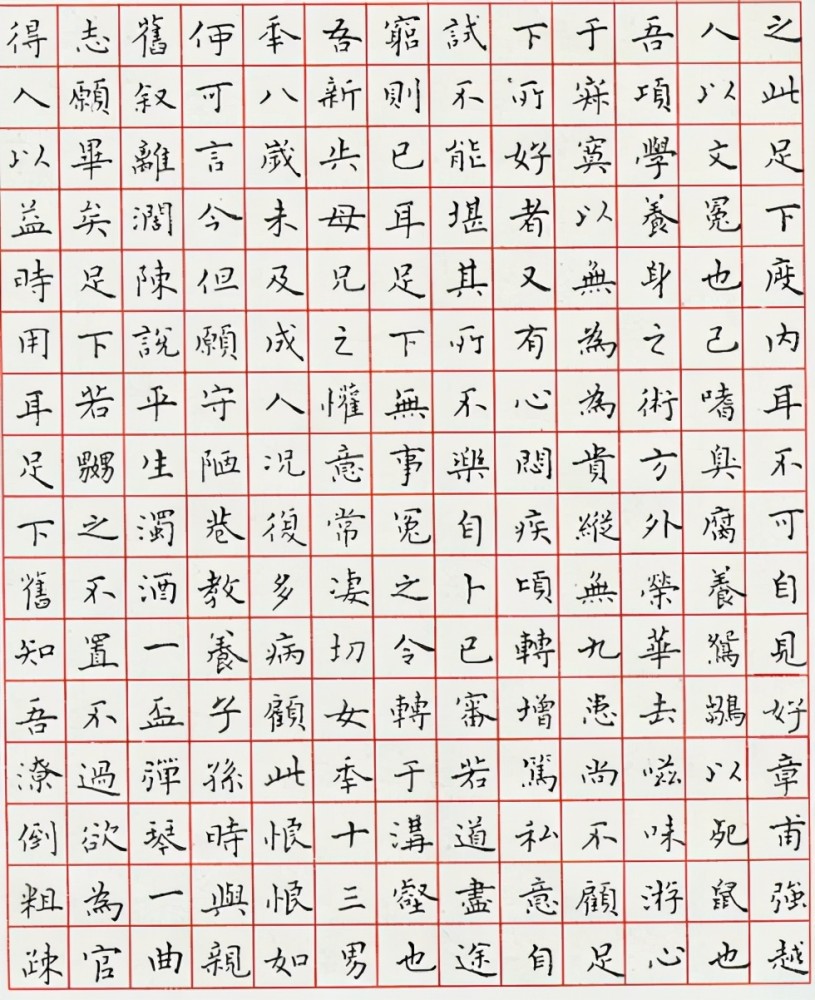 之此足下度内耳不可自見好章甫強越
人以文冕也己嗜臭腐養鴛鶵以死鼠也
吾頃學養身之術方外榮華去滋味游心
于寂寞以無為為貴縱無九患尚不顧足
下所好者又有心悶疾頃轉增篤私意自
試不能堪其所不樂自卜已審若道盡途
窮則已耳足下無事冤之令轉于溝壑也
吾新失母兄之懽意常凄切女年十三男
年八歲未及成人況復多病顧此悢悢如
何可言今但願守陋巷教養子孫時與親
舊叙離濶陳說平生濁酒一盃彈琴一曲
志願畢矣足下若嬲之不置不過欲為官
得人以益時用耳足下舊知吾潦倒粗疎